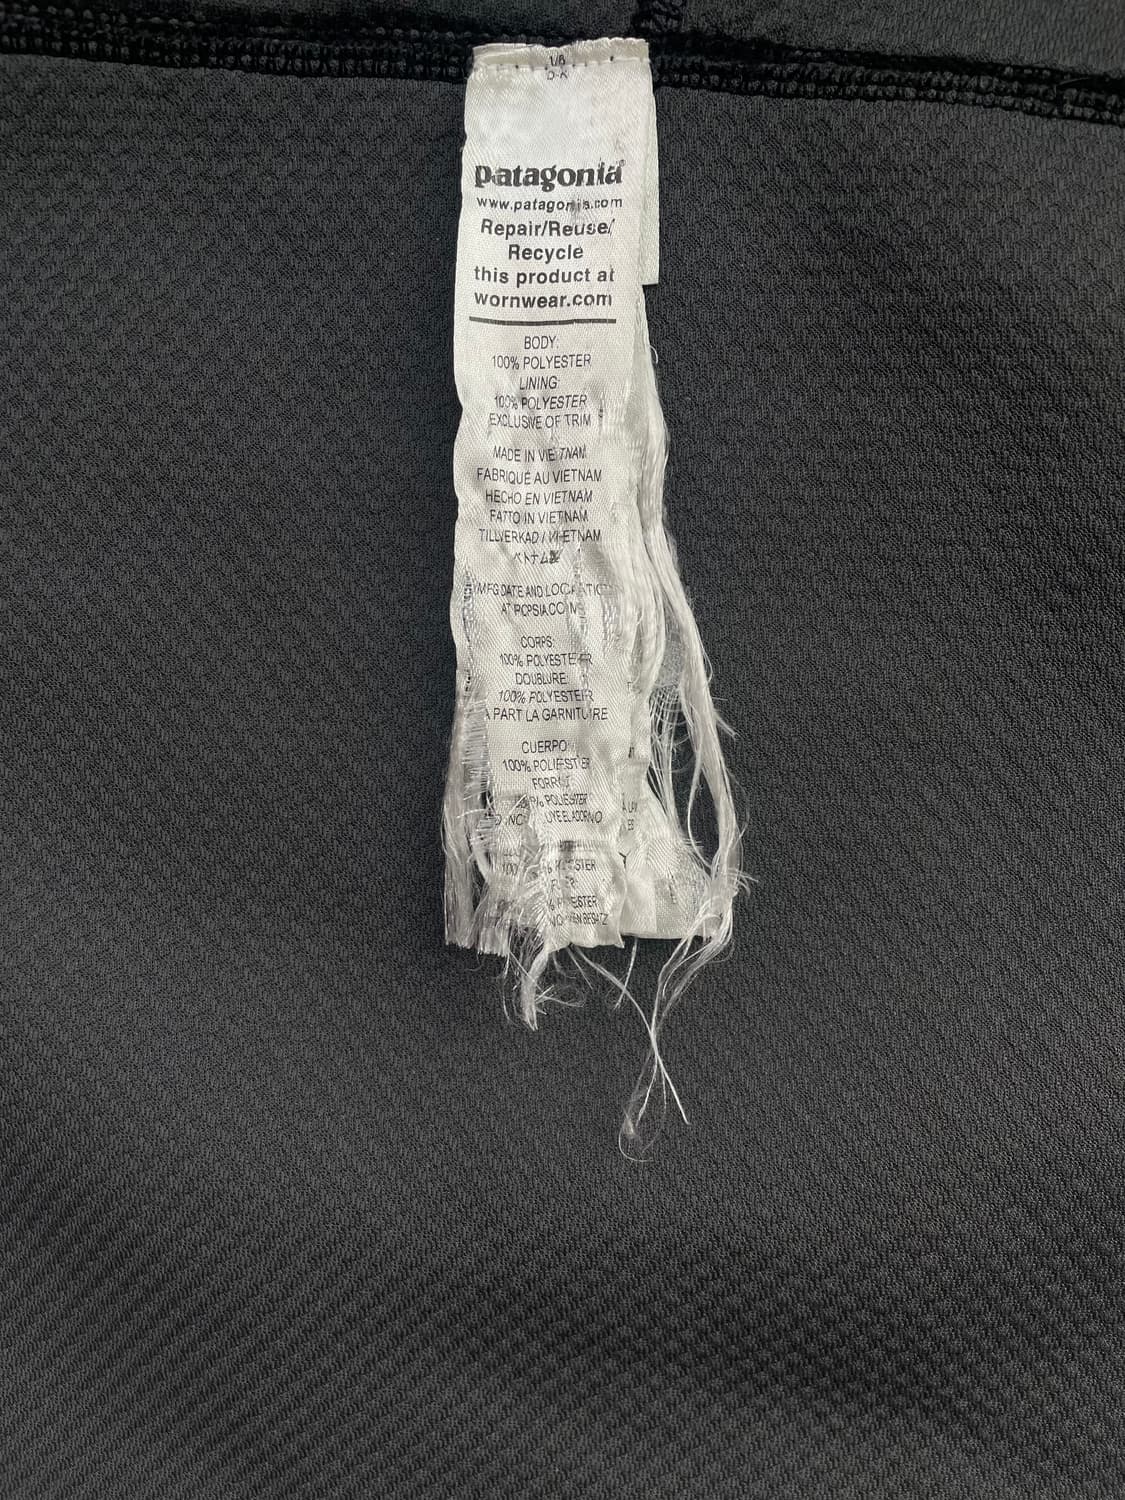 1/8
patagonia®
www.patagonia.com
Repair/Reuse/
Recycle
this product at
wornwear.com
BODY:
100% POLYESTER
LINING:
100% POLYESTER
EXCLUSIVE OF TRIM
MADE IN VIETNAM
FABRIQUÉ AU VIETNAM
HECHO EN VIETNAM
FATTO IN VIETNAM
TILLVERKAD I VIETNAM
ベトナム製
MFG DATE AND LOCATION
AT PCPSIA.COM
CORPS:
100% POLYESTER
DOUBLURE:
100% POLYESTER
À PART LA GARNITURE
CUERPO:
100% POLIÉSTER
% POLIÉSTER
UYE EL ADORNO
100
% POLYESTER